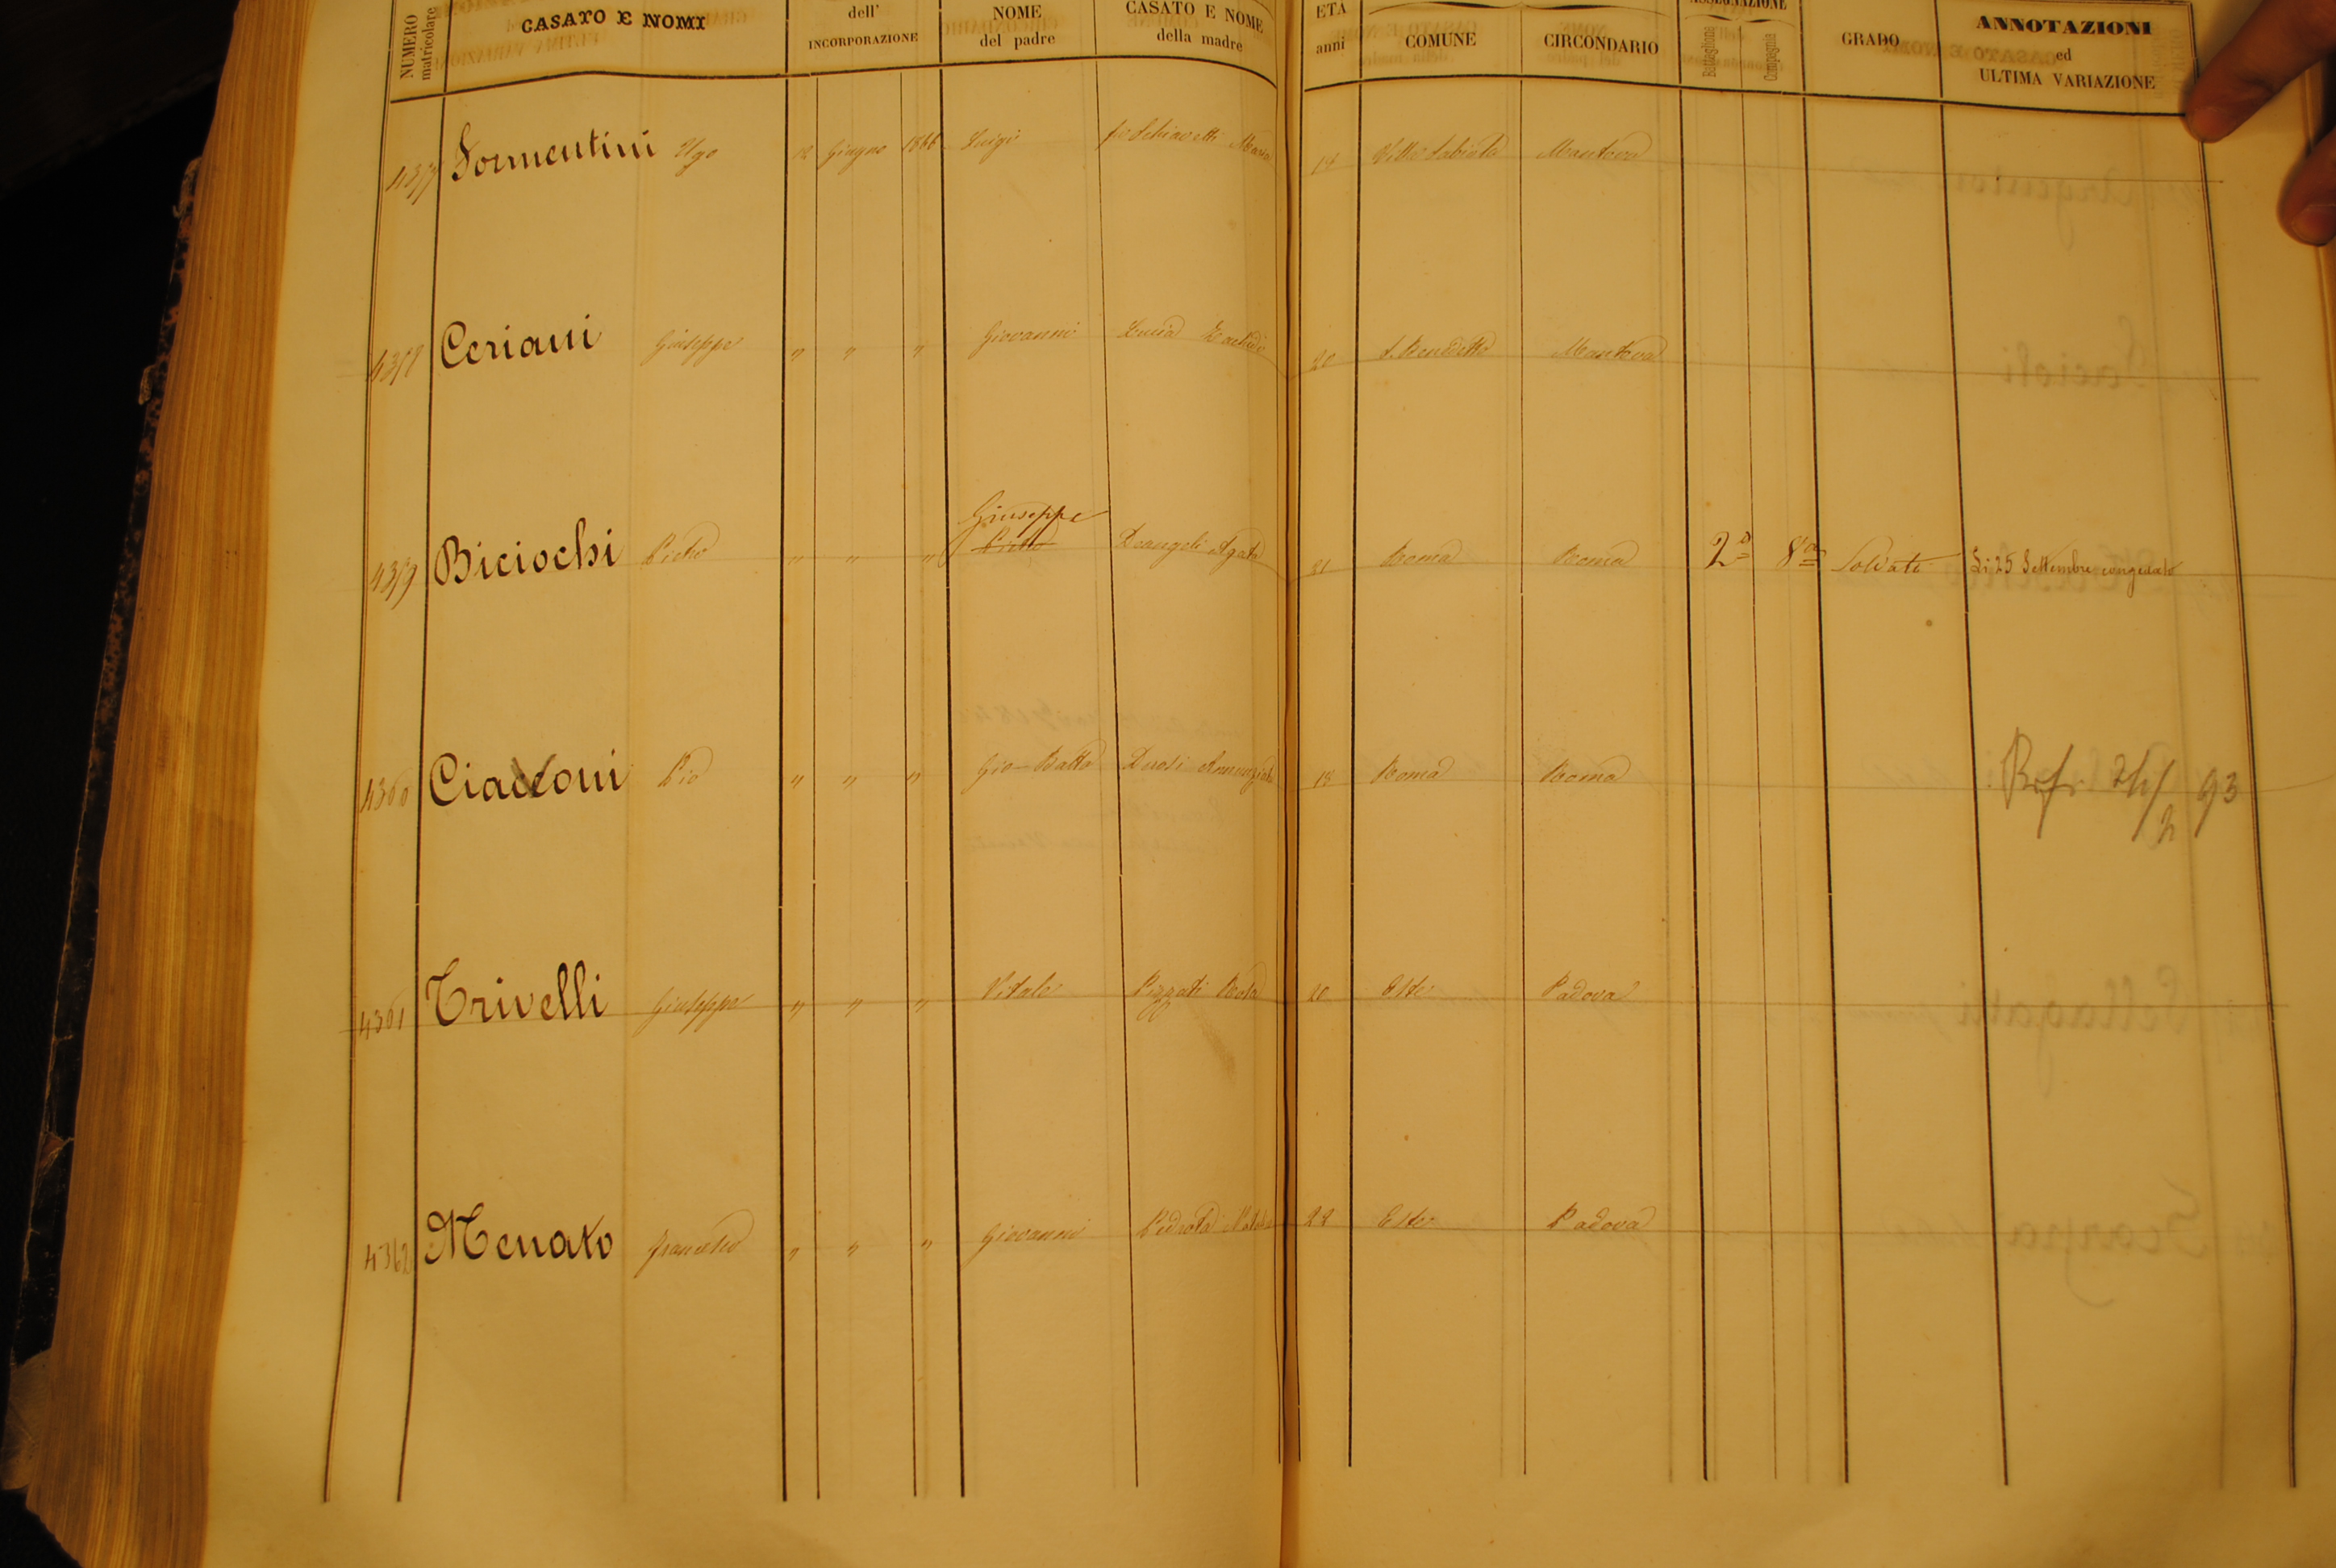 NUMERO matricolare CASATO E NOMI dell' INCORPORAZIONE NOME del padre CASATO E NOME della madre ETÀ anni COMUNE CIRCONDARIO ASSEGNAZIONE Battaglione Compagnia GRADO ANNOTAZIONI ed ULTIMA VARIAZIONE
4357 Sormentini Ugo 12 Giugno 1866 Luigi Schiavetti Maria 18 Mantova
4358 Ceriani Giuseppe " " " Giovanni Lucia 20 S. Benedetto Mantova
Giuseppe
4359 Biciochi Pietro " " " Pietro Deangeli Agata 21 Roma Roma 2º 8ª Soldato Li 25 Settembre congedato
4360 Ciacconi Pio " " " Gio-Batta Derosi Annunziata 18 Roma Roma 93
4361 Trivelli Giuseppe " " " Vitale Pizzati Rosa 20 Este Padova
4362 Menato Francesco " " " Giovanni 22 Este Padova